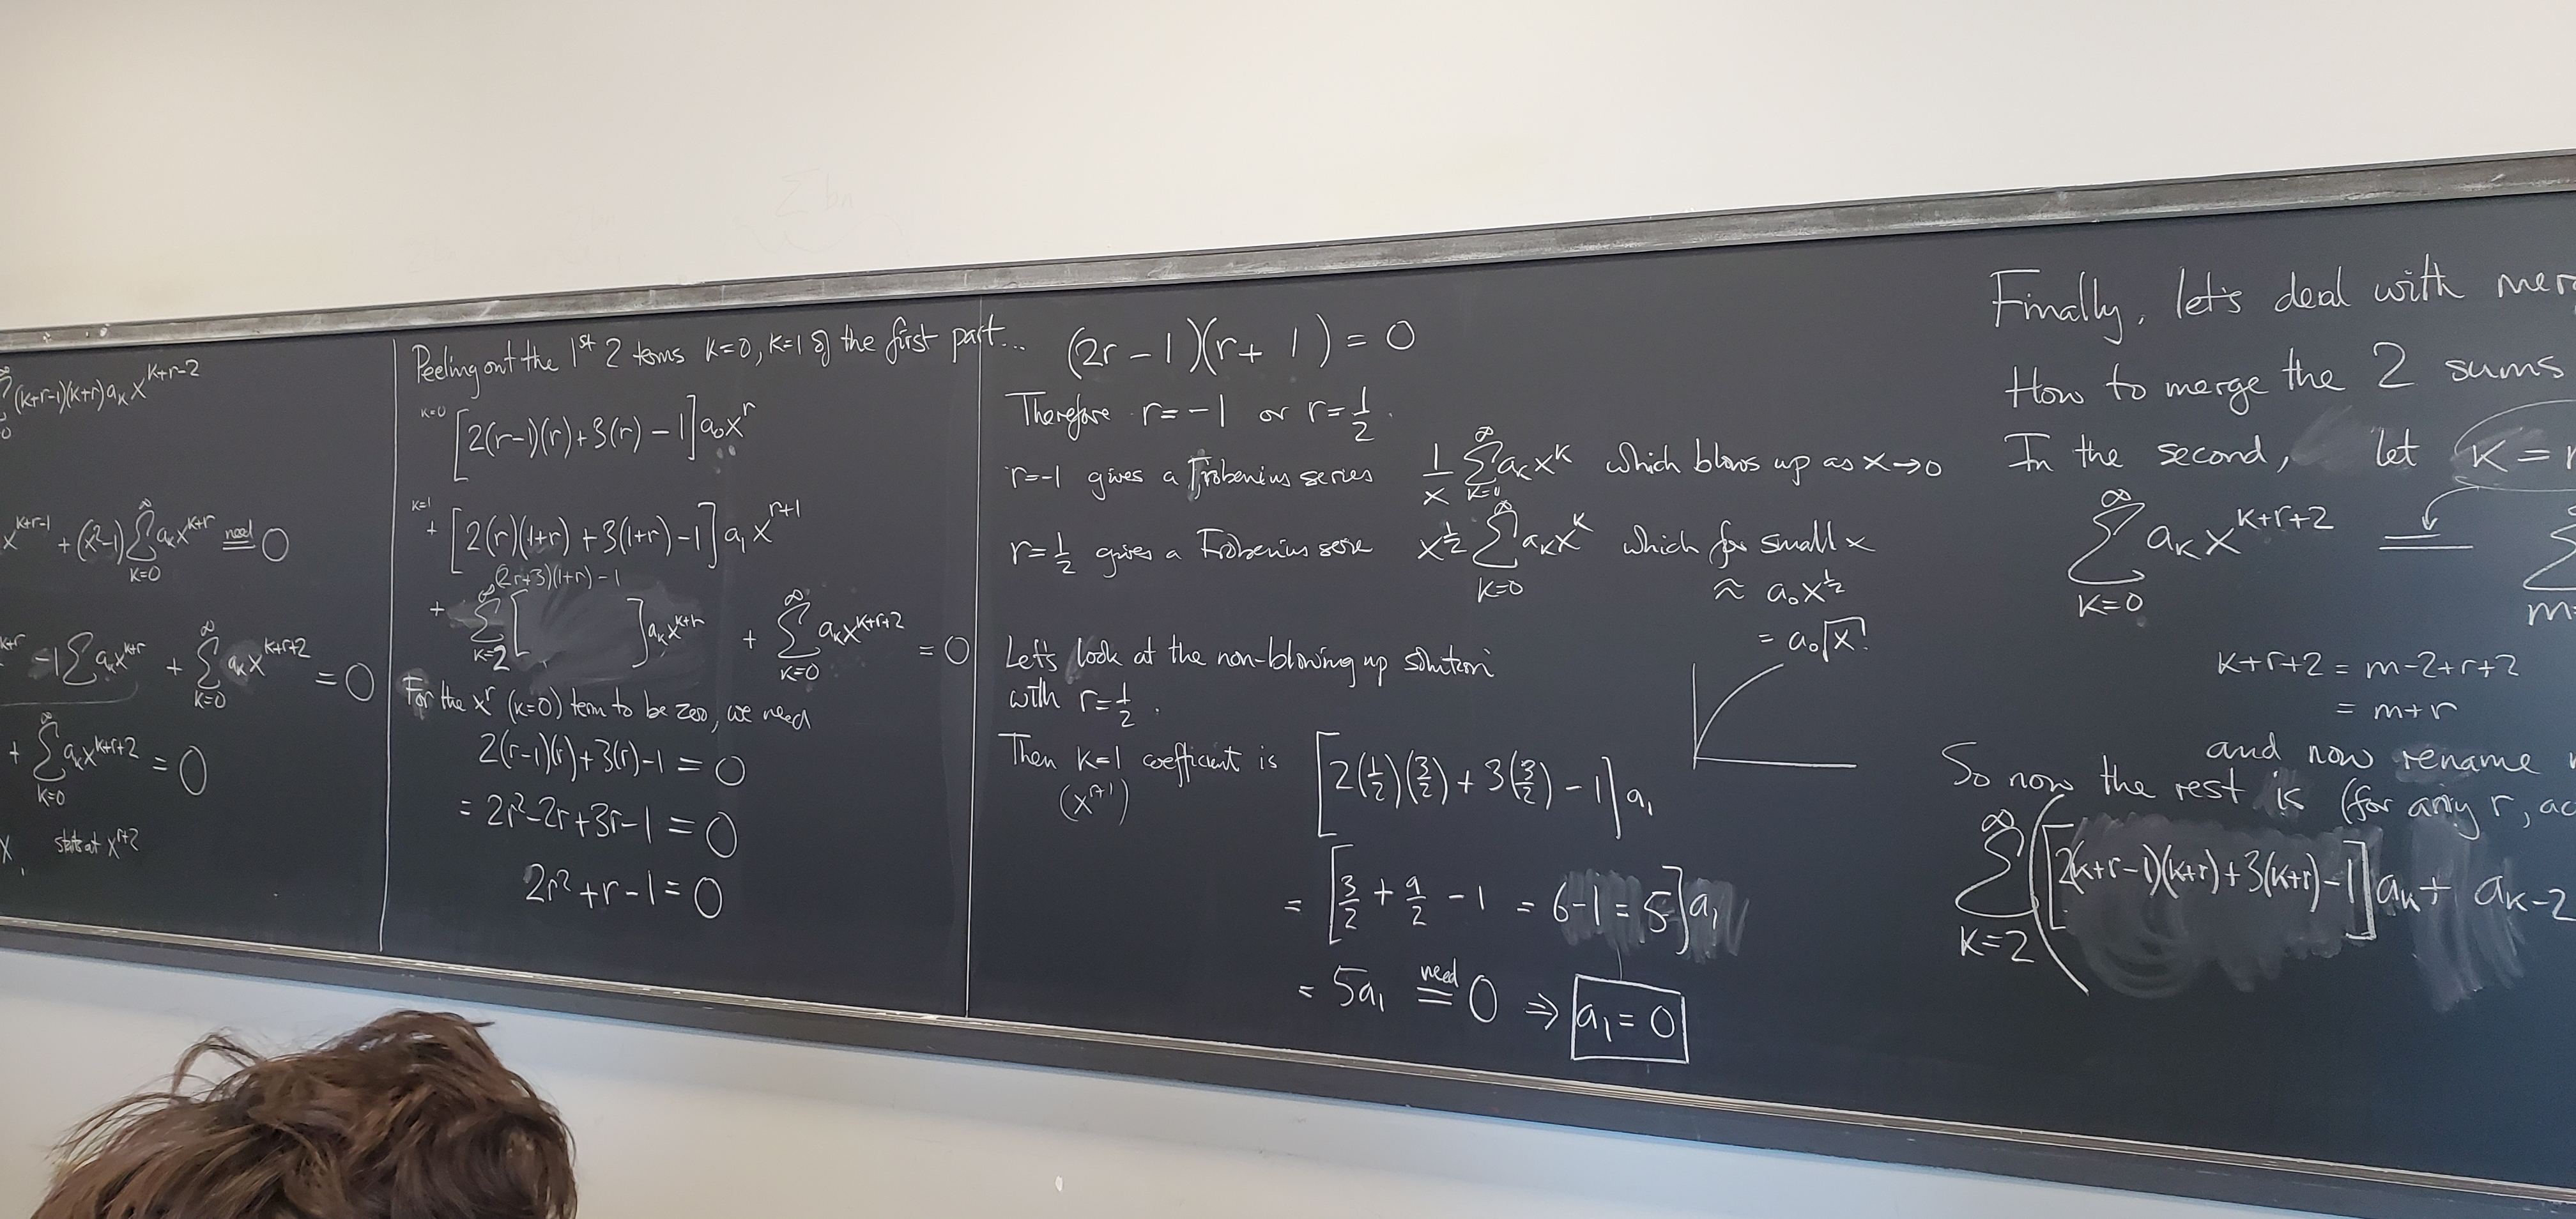 (k+r-1)(k+r)a_k x^{k+r-2}
0
x^{k+r-1} + (x²-1) ∑_{k=0}^{∞} a_k x^{k+r} =^{need} 0
-1∑ a_k x^{k+r} + ∑_{k=0}^{∞} a_k x^{k+r+2} = 0
+ ∑_{k=0}^{∞} a_k x^{k+r+2} = 0
starts at x^{r+2}
Peeling out the 1st 2 terms K=0, K=1 of the first part...
K=0 [2(r-1)(r)+3(r)-1]a₀x^r
K=1 + [2(r)(1+r)+3(1+r)-1]a₁x^{r+1}
(2r+3)(1+r)-1
+ ∑_{k=2}^{∞} [ ]a_k x^{k+r} + ∑_{k=0}^{∞} a_k x^{k+r+2} = 0
For the x^r (k=0) term to be zero, we need
2(r-1)(r)+3(r)-1 = 0
= 2r²-2r+3r-1 = 0
2r²+r-1 = 0
(2r-1)(r+1) = 0
Therefore r=-1 or r=1/2.
r=-1 gives a Frobenius series 1/x ∑_{k=0}^{∞} a_k x^k which blows up as x→0
r=1/2 gives a Frobenius serie x^{1/2} ∑_{k=0}^{∞} a_k x^k which for small x
≈ a₀x^{1/2}
= a₀√x!
Let's look at the non-blowing up solution
with r=1/2.
Then K=1 coefficient is [2(1/2)(3/2)+3(3/2)-1]a₁
(x^{r+1})
= [3/2 + 9/2 - 1 = 6-1 = 5]a₁
= 5a₁ =^{need} 0 ⇒ a₁ = 0
Finally, let's deal with
How to merge the 2 sums
In the second, let K =
∑_{k=0}^{∞} a_k x^{k+r+2} = ∑
m=
K+r+2 = m-2+r+2
= m+r
and now rename
So now the rest is (for any r,
∑_{k=2}^{∞} ([2(k+r-1)(k+r)+3(k+r)-1]a_k + a_{k-2}